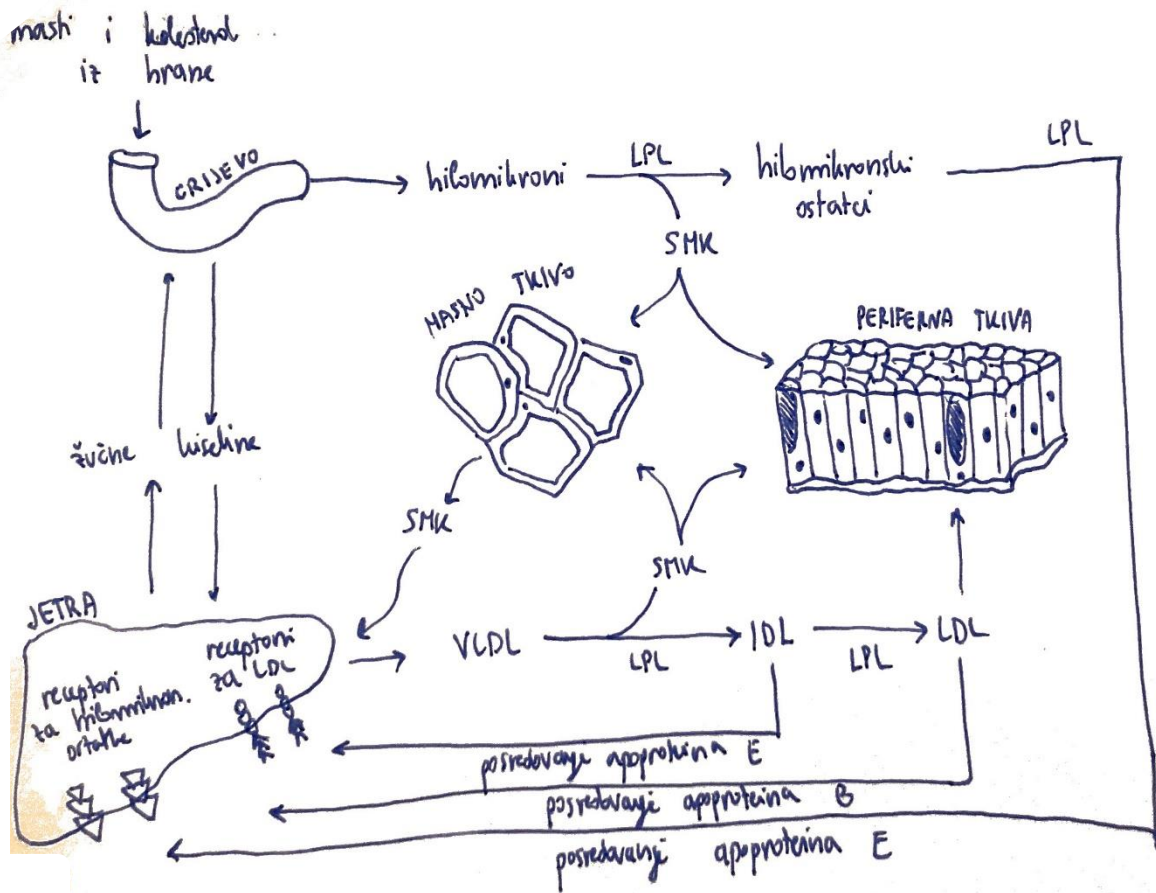 masti i kolesterol
iz hrane
CRIJEVO
hilomikroni
LPL
hilomikronski
ostatci
LPL
SMK
MASNO TKIVO
PERIFERNA TKIVA
žučne kiseline
SMK
SMK
JETRA
receptori
za hilomikron.
ostatke
receptori
za LDL
VLDL
LPL
IDL
LPL
LDL
posredovanje apoproteina E
posredovanje apoproteina B
posredovanje apoproteina E